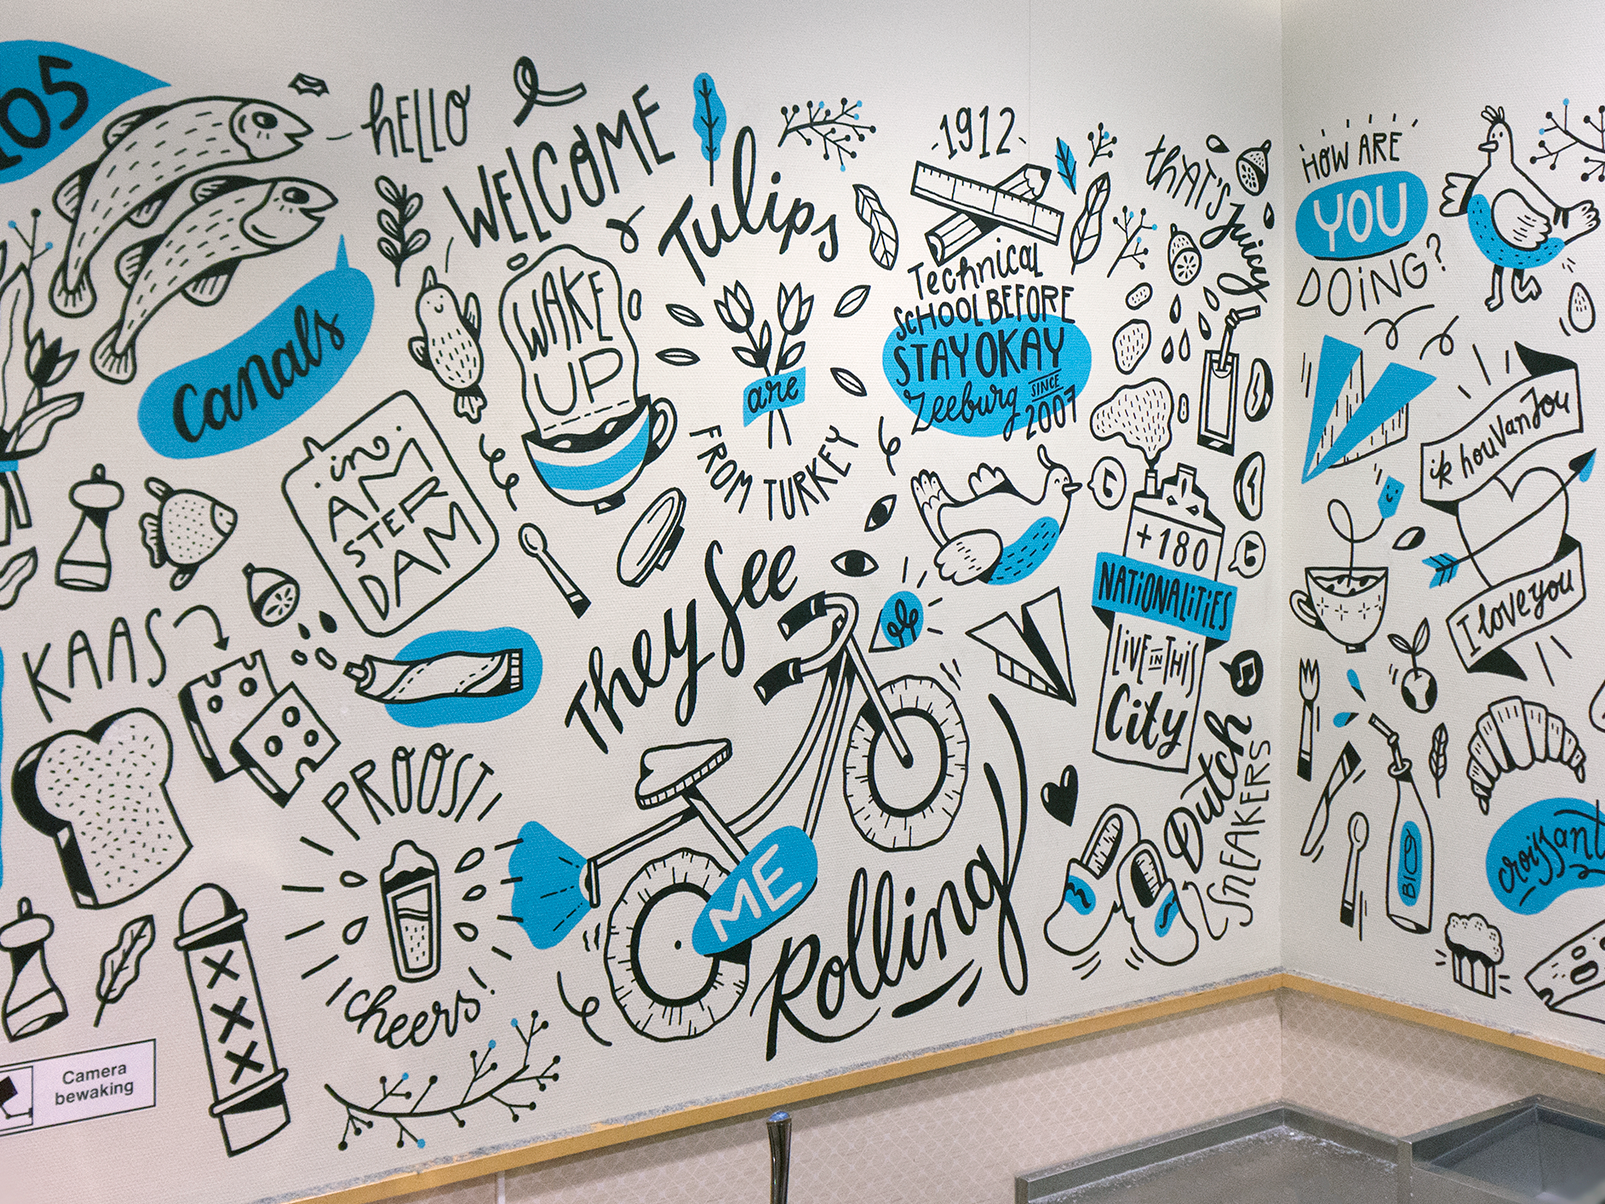 105
Canals
in
AM
STER
DAM
HELLO
WELCOME
WAKE
UP
Tulips
are
FROM TURKEY
1912
Technical
SCHOOL BEFORE
STAYOKAY
Zeeburg SINCE
2007
tHAT'S
Juicy
+180
NATIONALITIES
LIVE IN THIS
City
KAAS
PROOST!
cheers!
XXX
They See
ME
Rolling
Dutch
SNEAKERS
Camera
bewaking
HOW ARE
YOU
DOING?
ik hou Van Jou
I love you
BIO
croissant